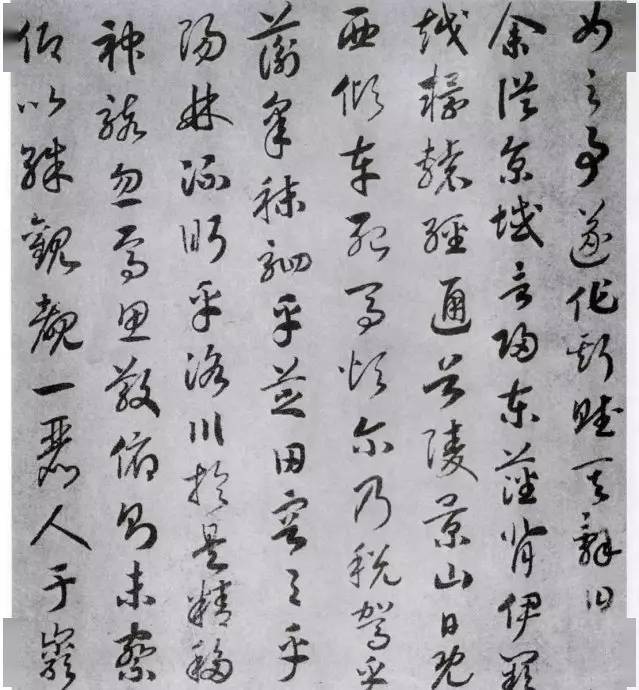 女之事遂作斯賦其辭曰
余從京域言歸東藩背伊闕
越轘轅經通谷陵景山日既
西傾車殆馬煩尔乃稅駕乎
蘅皋秣駟乎芝田容與乎
陽林流眄乎洛川於是精移
神駭忽焉思散俯則未察
仰以殊觀覩一麗人于巖